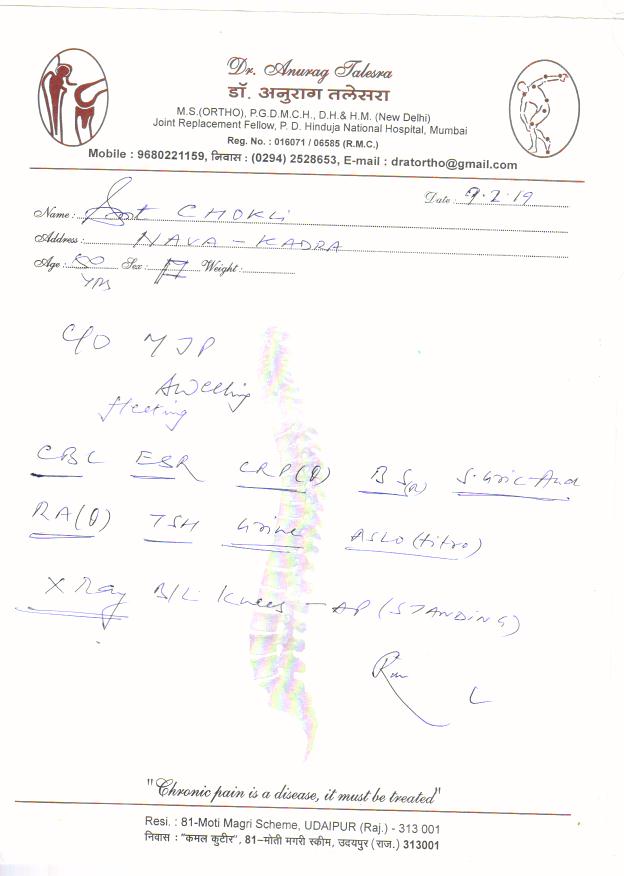 Dr. Anurag Talesra
डॉ. अनुराग तलेसरा
M.S.(ORTHO), P.G.D.M.C.H., D.H.& H.M. (New Delhi)
Joint Replacement Fellow, P. D. Hinduja National Hospital, Mumbai
Reg. No. : 016071 / 06585 (R.M.C.)
Mobile : 9680221159, निवास : (0294) 2528653, E-mail : dratortho@gmail.com
Date : 9.2.19
Name : Smt CHOKLI
Address : NAVA - KADRA
Age : 50 Sex : F Weight :
yrs
C/O MJP
Swelling
fleeting
CBC ESR CRP(Q) BS(R) S.Uric Acid
RA(Q) TSH Urine ASLO (titre)
X Ray B/L Knees - AP (STANDING)
"Chronic pain is a disease, it must be treated"
Resi. : 81-Moti Magri Scheme, UDAIPUR (Raj.) - 313 001
निवास : "कमल कुटीर", 81–मोती मगरी स्कीम, उदयपुर (राज.) 313001